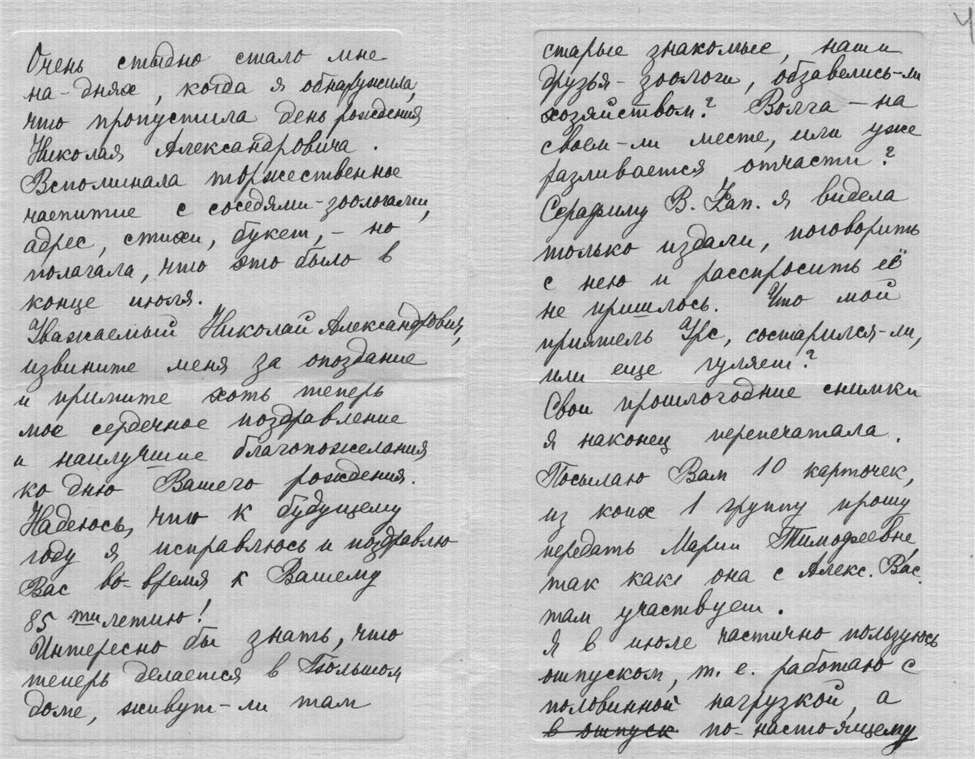 Очень стыдно стало мне
на-днях, когда я обнаружила,
что пропустила день рождения
Николая Александровича.
Вспоминала торжественное
чаепитие с соседями-зоологами,
адрес, стихи, букет, - но
полагала, что это было в
конце июля.
Уважаемый Николай Александрович,
извините меня за опоздание
и примите хоть теперь
мое сердечное поздравление
и наилучшие благопожелания
ко дню Вашего рождения.
Надеюсь, что к будущему
году я исправлюсь и поздравлю
Вас во-время к Вашему
85 тилетию!
Интересно бы знать, что
теперь делается в Большом
доме, живут-ли там
старые знакомые, наши
друзья-зоологи, обзавелись-ли
хозяйством? Волга - на
своем-ли месте, или уже
разливается отчасти?
Серафиму В. Кап. я видела
только издали, поговорить
с нею и расспросить её
не пришлось. Что мой
приятель Урс, состарился-ли,
или еще гуляет?
Свои прошлогодние снимки
я наконец перепечатала.
Посылаю Вам 10 карточек,
из коих 1 группу прошу
передать Марии Тимофеевне,
так как она с Алекс. Вас.
там участвует.
Я в июле частично пользуюсь
отпуском, т. е. работаю с
половинной нагрузкой, а
в отпуск по-настоящему